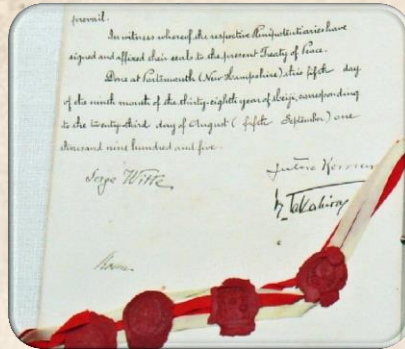 prevail.
In witness whereof the respective Plenipotentiaries have
signed and affixed their seals to the present Treaty of Peace.
Done at Portsmouth (New Hampshire) this fifth day
of the ninth month of the thirty-eighth year of Meiji, corresponding
to the twenty-third day of August (fifth September) one
thousand nine hundred and five.
Serge Witte
Jutaro Komura
K. Takahira
Rosen